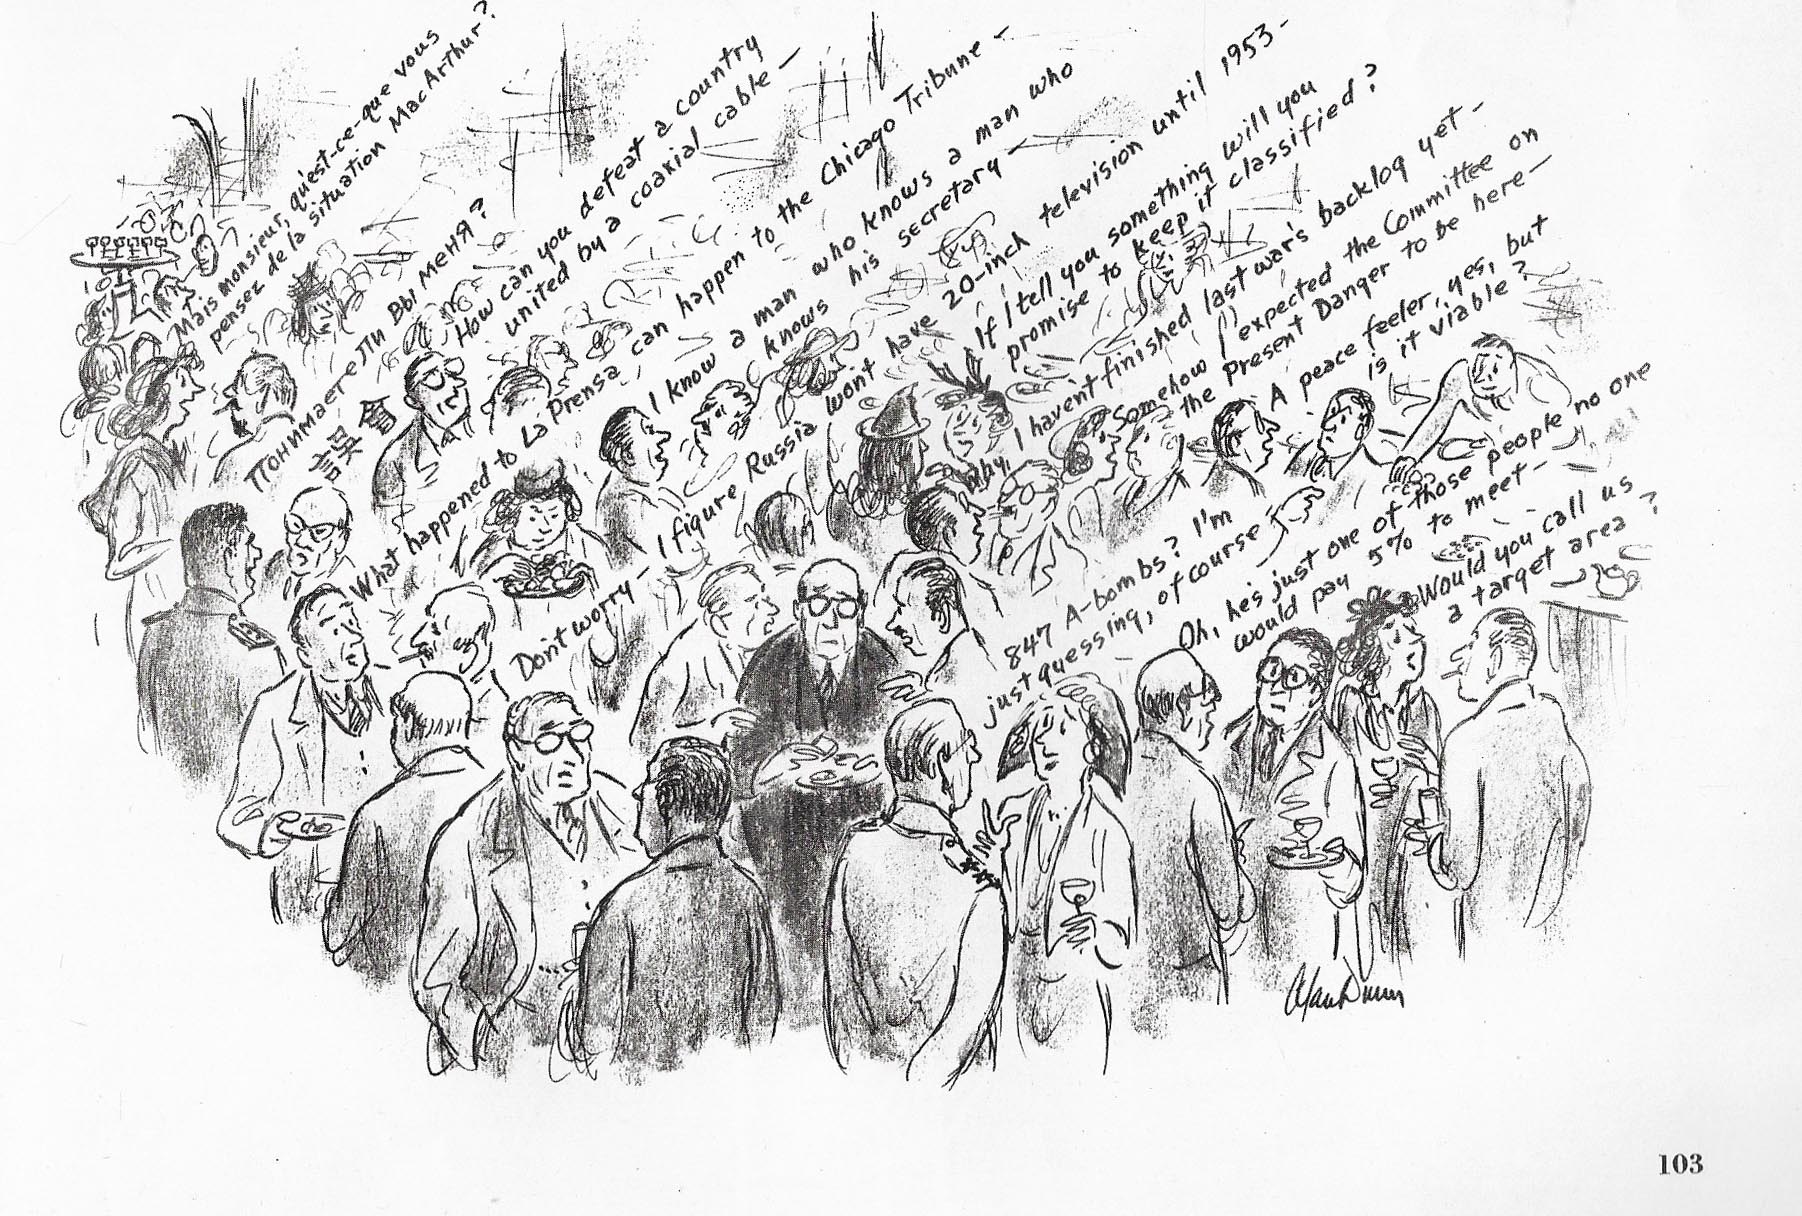 Mais monsieur, qu'est-ce-que vous
pensez de la situation MacArthur?
Понимаете ли Вы меня?
誤會
How can you defeat a country
united by a coaxial cable —
What happened to La Prensa can happen to the Chicago Tribune —
I know a man who knows a man who
knows his secretary —
Don't worry — I figure Russia wont have 20-inch television until 1953 —
If I tell you something will you
promise to keep it classified?
Why, I haven't finished last war's backlog yet —
Somehow I expected the Committee on
the Present Danger to be here —
A peace feeler, yes, but
is it viable?
847 A-bombs? I'm
just guessing, of course —
Oh, he's just one of those people no one
would pay 5% to meet —
Would you call us
a target area?
Alan Dunn
103